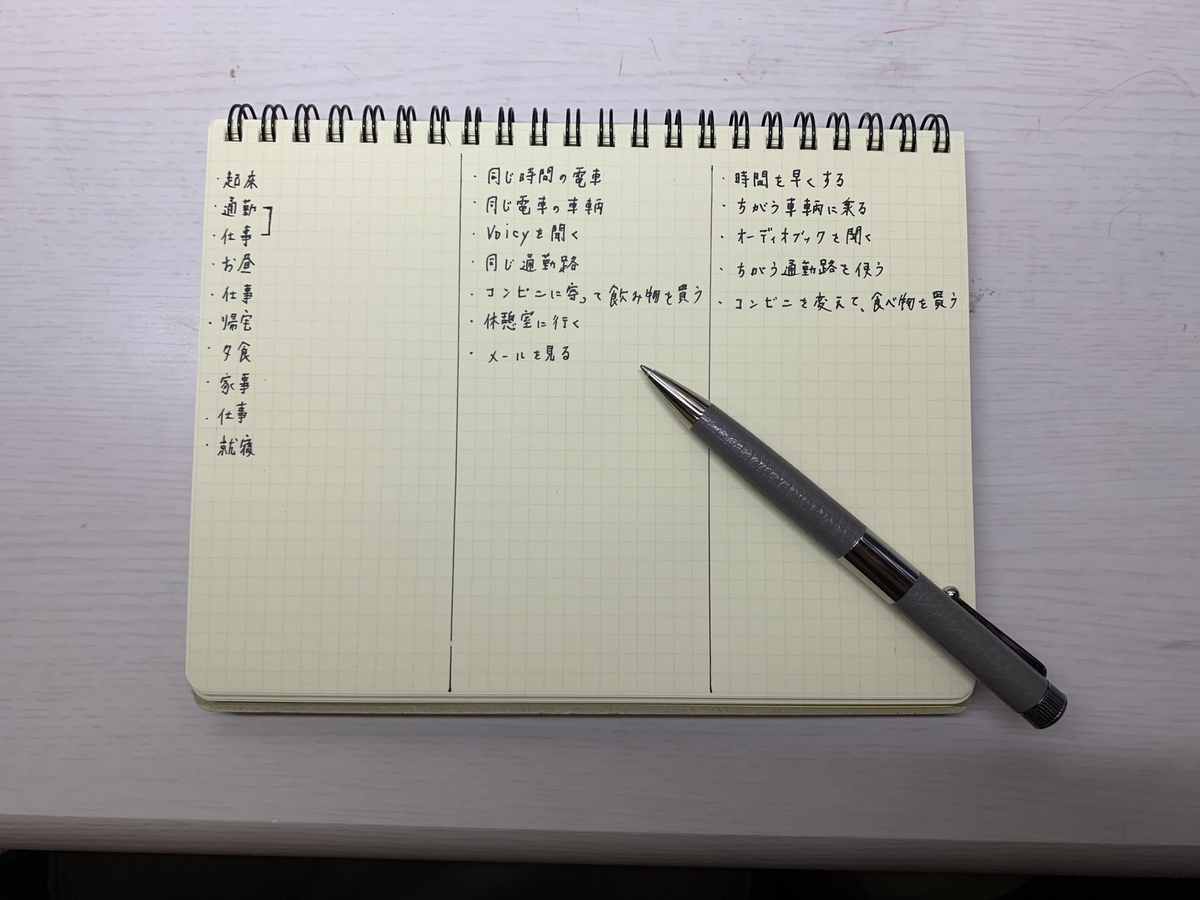 ・起床
・通勤
・仕事
・お昼
・仕事
・帰宅
・夕食
・家事
・仕事
・就寝
・同じ時間の電車
・同じ電車の車輌
・Voicyを聞く
・同じ通勤路
・コンビニに寄って飲み物を買う
・休憩室に行く
・メールを見る
・時間を早くする
・ちがう車輌に乗る
・オーディオブックを聞く
・ちがう通勤路を使う
・コンビニを変えて、食べ物を買う